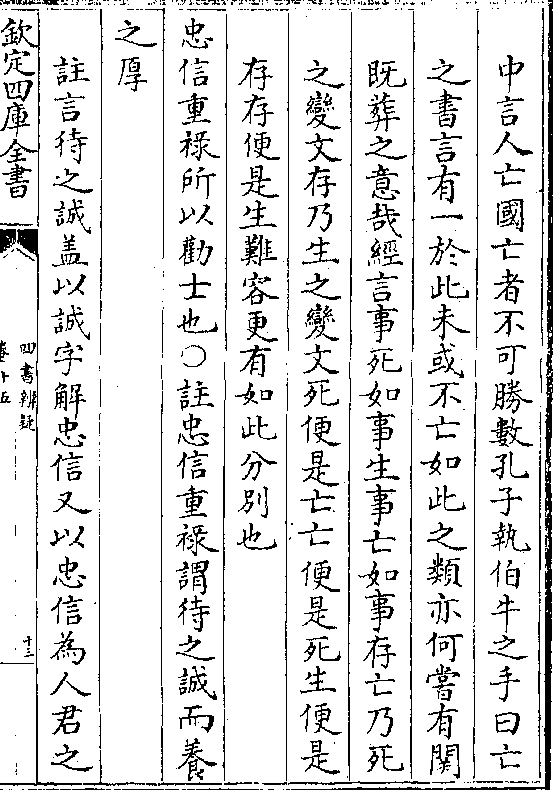 中言人亡國亡者不可勝數孔子執伯牛之手曰亡
之書言有一於此未或不亡如此之類亦何嘗有關
既葬之意哉經言事死如事生事亡如事存亡乃死
之變文存乃生之變文死便是亡亡便是死生便是
存存便是生難容更有如此分別也
忠信重祿所以勸士也○註忠信重祿謂待之誠而養
之厚
註言待之誠盖以誠字解忠信又以忠信為人君之
欽定四庫全書
四書辨疑
卷十五
十三